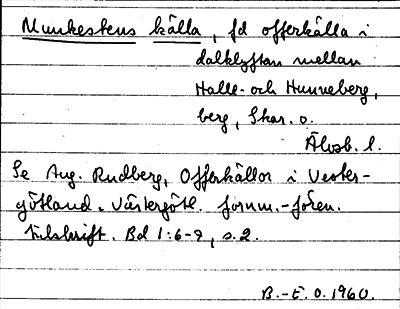 Munkestens källa, fd offerkälla i
dalklyftan mellan
Halle- och Hunneberg,
berg, Skar. o.
Älvsb. l.
Se Aug. Rudberg, Offerkällor i Vester-
götland. Västergötl. fornm.-fören.
tidskrift. Bd 1:6-9, s.2.
B.-E. O. 1960.